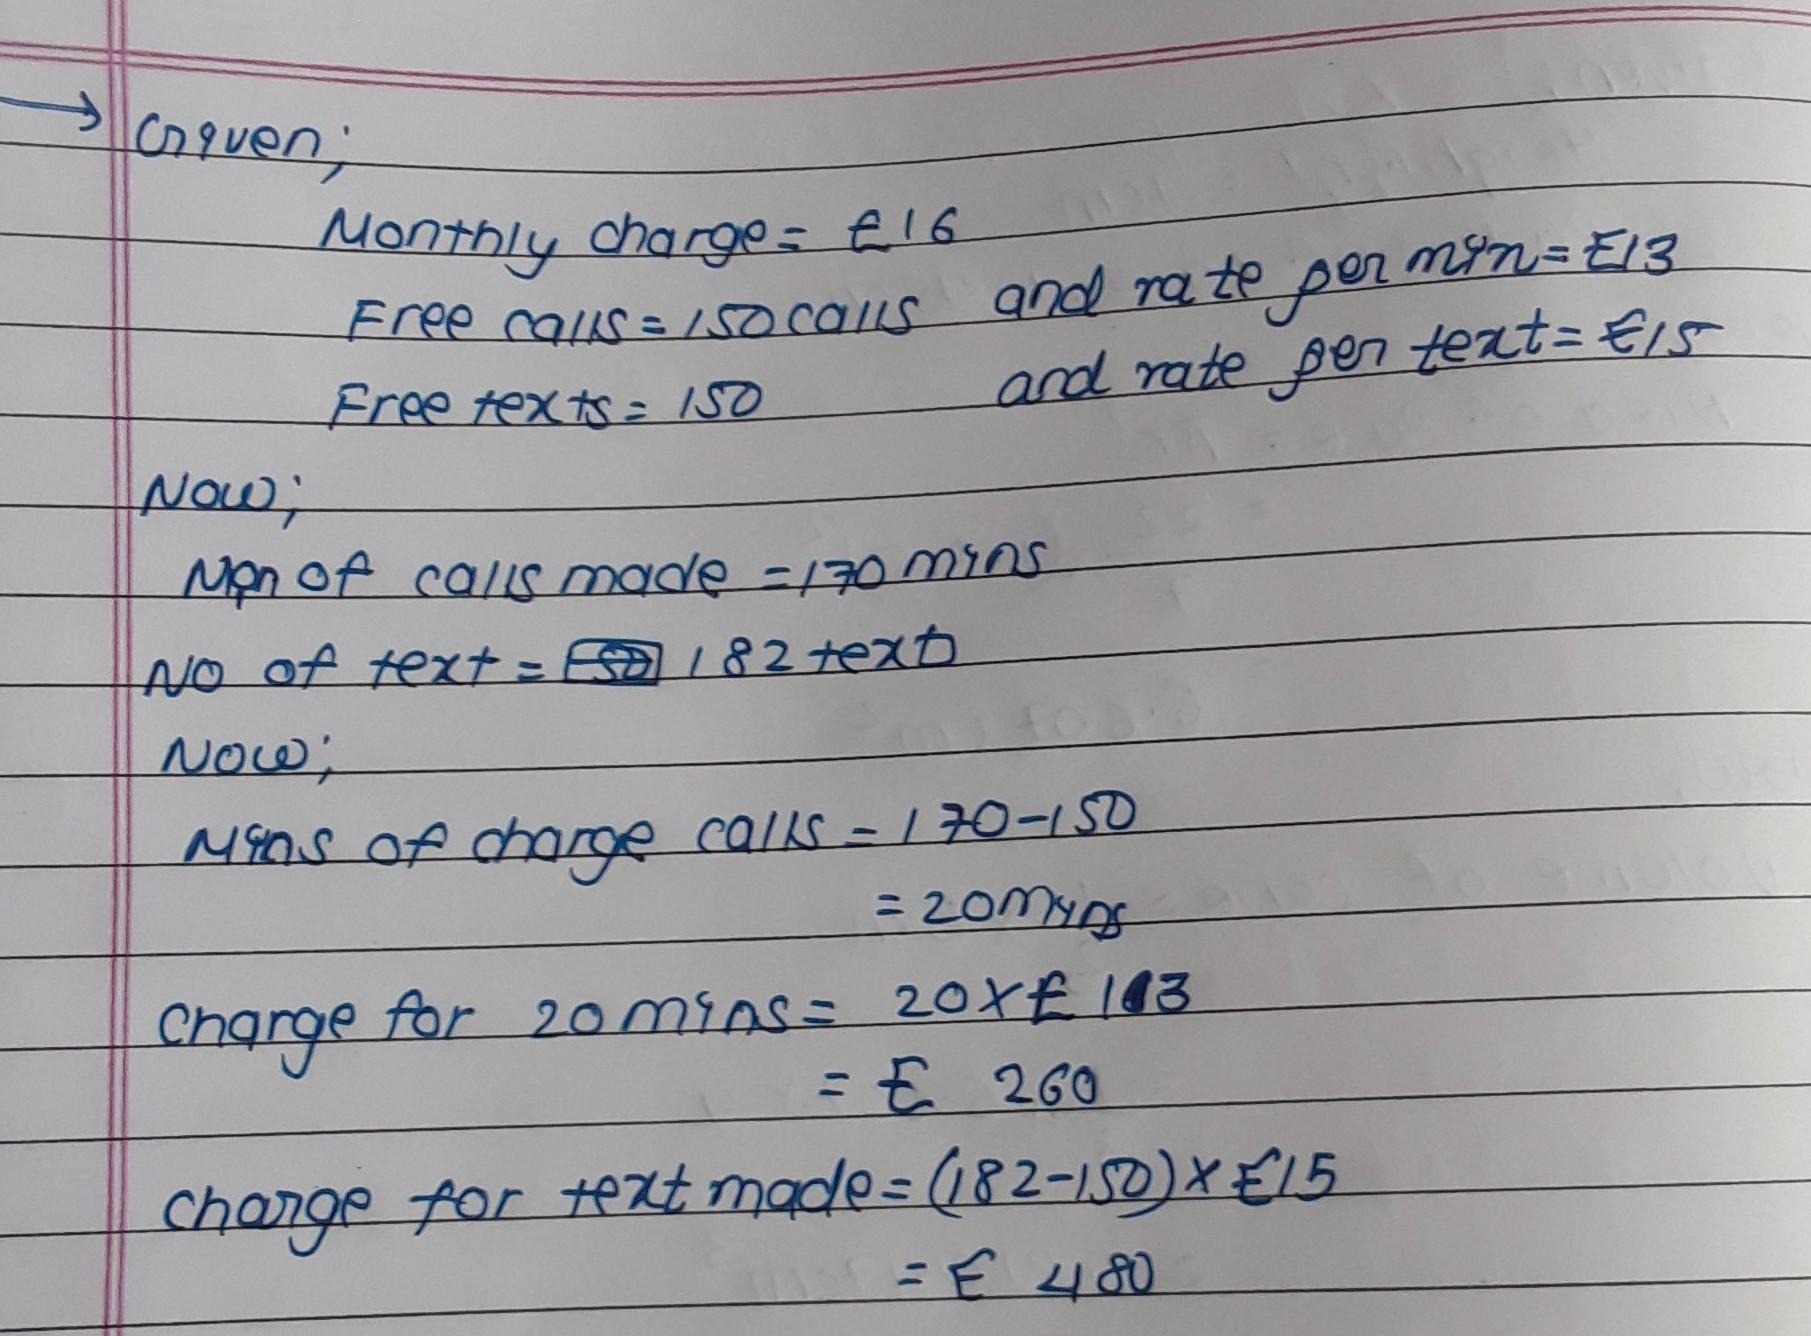 → Given;
Monthly charge = £16
Free calls = 150 calls and rate per min = £13
Free texts = 150 and rate per text = £15
Now;
Min of calls made = 170 mins
No of text = 182 text
Now;
Mins of charge calls = 170-150
= 20 mins
charge for 20 mins = 20 x £ 13
= £ 260
charge for text made = (182-150) x £15
= £ 480